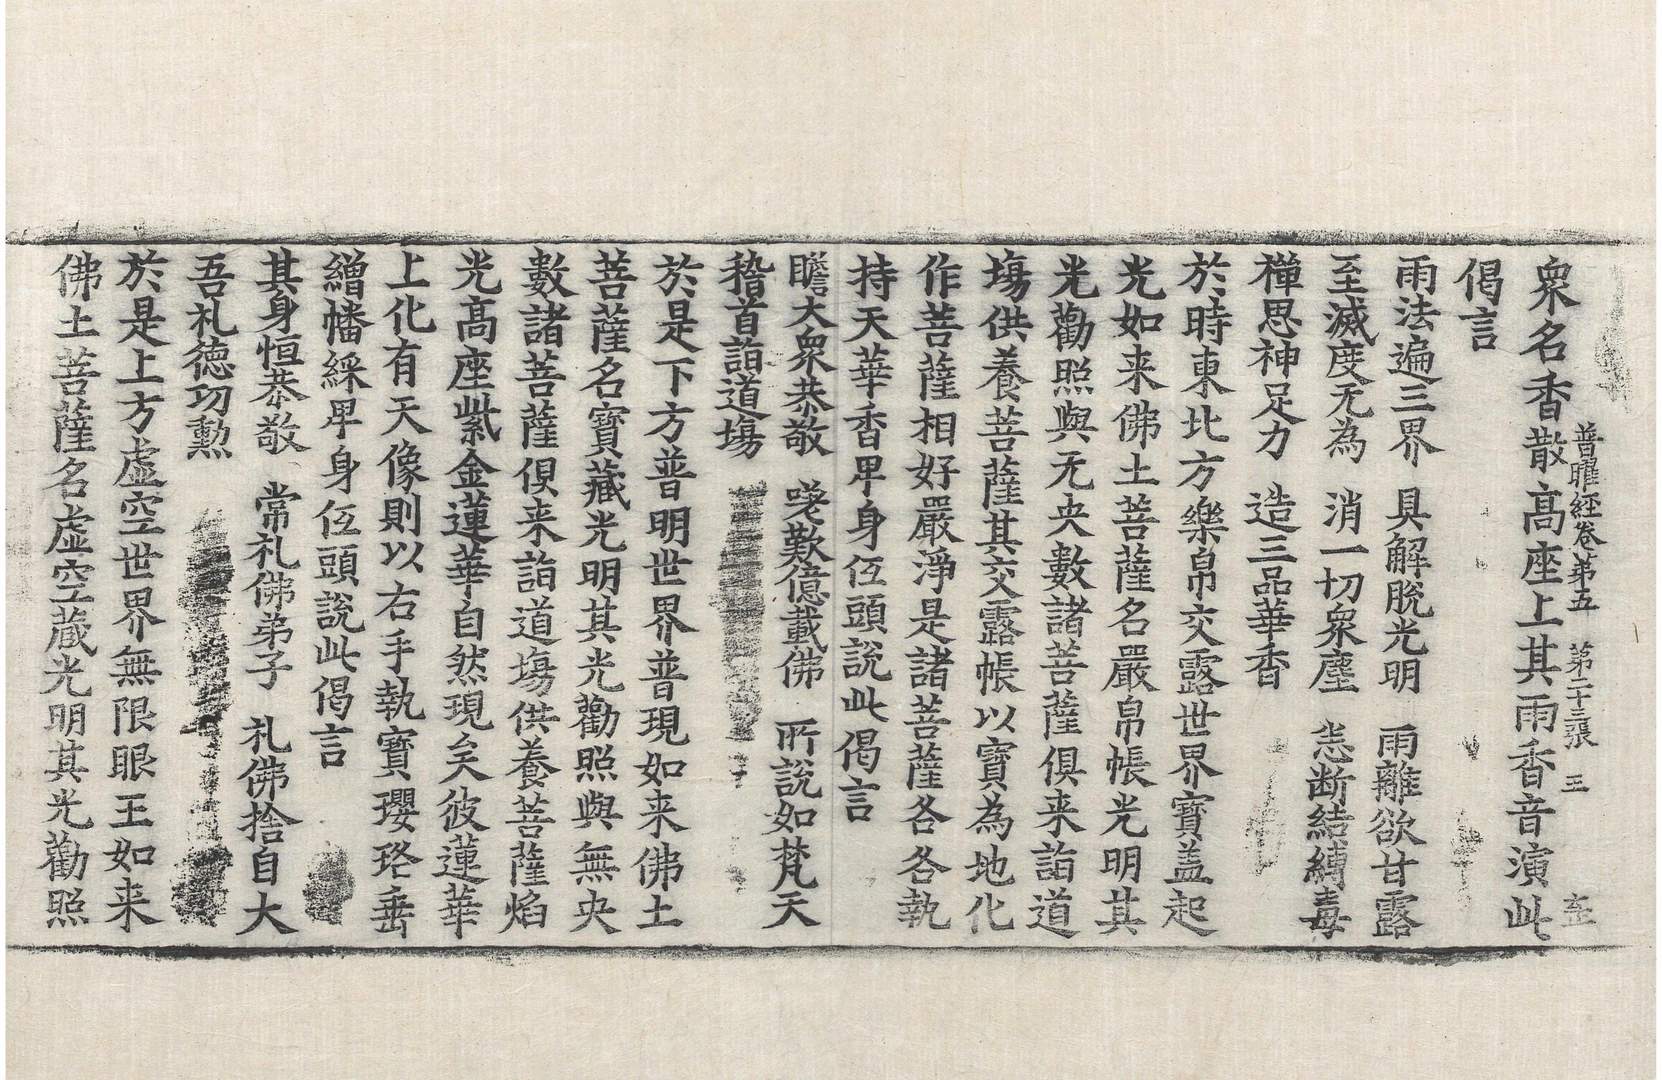 衆名香散髙座上其雨香音演此
普曜經卷第五　第二十三張　王
偈言
雨法遍三界　具解脫光明　雨離欲甘露
至滅度无為　消一切衆塵　恙断結縛毒
禪思神足力　造三品華香
於時東北方樂帛交露世界寶盖起
光如来佛土菩薩名嚴帛帳光明其
光勸照與无央數諸菩薩俱来詣道
塲供養菩薩其交露帳以寶為地化
作菩薩相好嚴淨是諸菩薩各各執
持天華香卑身伍頭說此偈言
瞻大衆恭敬　嗟歎億載佛　所說如梵天
稽首詣道塲
於是下方普明世界普現如来佛土
菩薩名寶藏光明其光勸照與無央
數諸菩薩俱来詣道塲供養菩薩焰
光髙座紫金蓮華自然現矣彼蓮華
上化有天像則以右手執寶瓔珞垂
繒幡綵卑身伍頭說此偈言
其身恒恭敬　常礼佛弟子　礼佛捨自大
吾礼徳功勲
於是上方虛空世界無限眼王如来
佛土菩薩名虛空蔵光明其光勸照